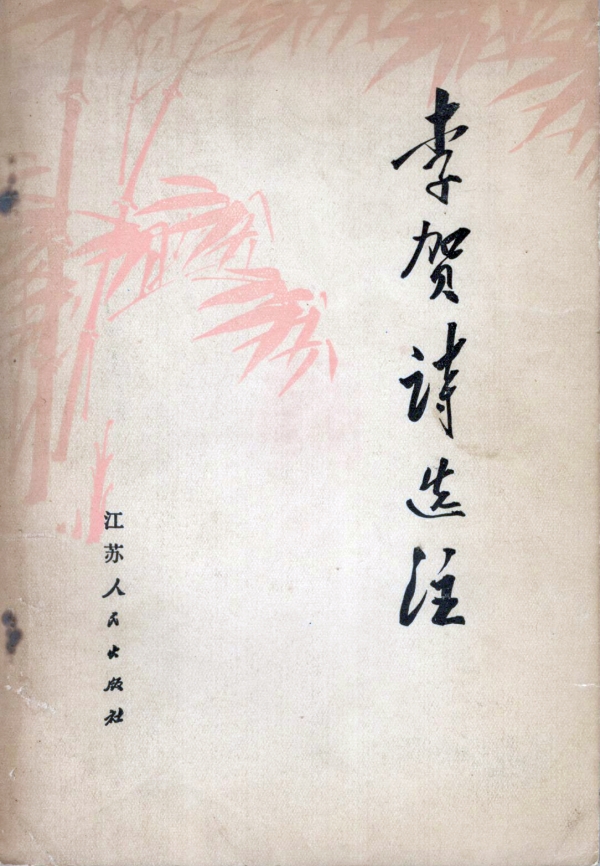 李贺诗选注
江苏人民出版社